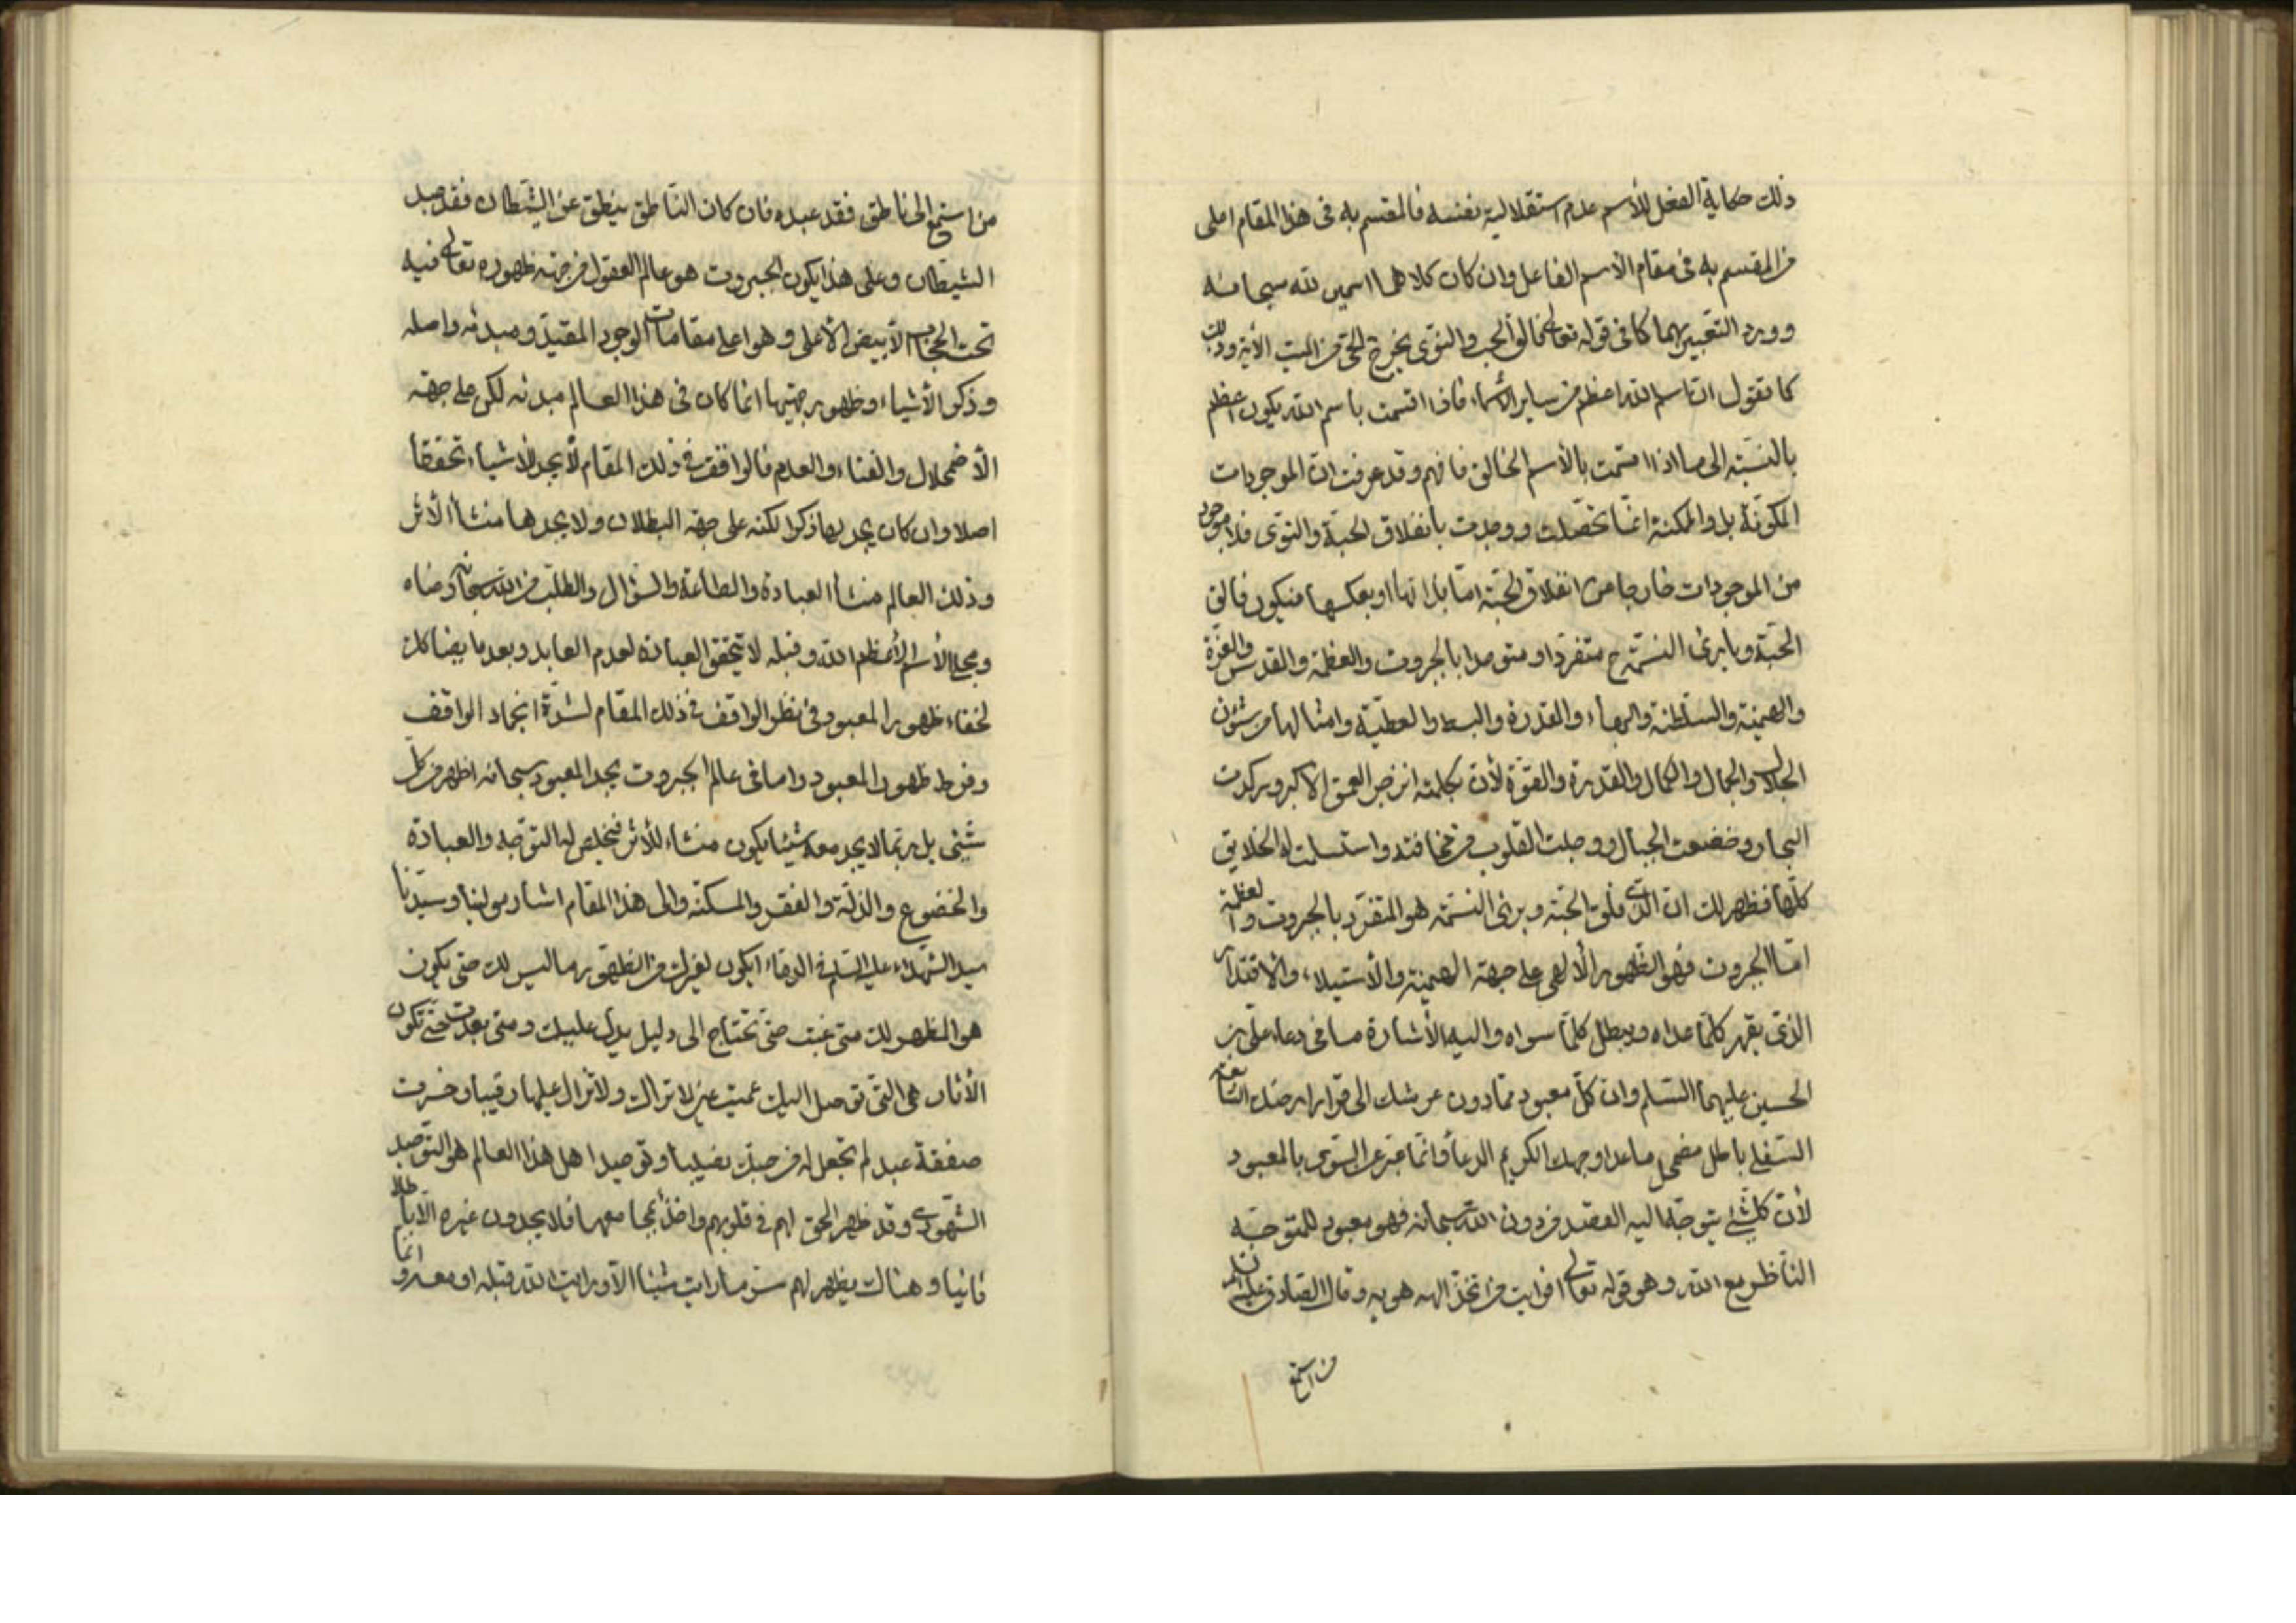 ذلك حكاية الفعل للأسم عدم استقلالية بنفسه فالمقسم به فى هذا المقام اعلى
من المقسم به فى مقام الأسم الفاعل وان كان كلاهما اسمين لله سبحانه
وورد التعبير بهما كما فى قوله تعالى فالق الحب والنوى يخرج الحى من الميت الأية وذلك
كما تقول ان اسم الله اعظم من ساير الأسماء فاذا اقسمت باسم الله يكون اعظم
بالنسبة الى ما اذا اقسمت بالأسم الخالق فافهم وقد عرفت ان الموجودات
المكونة بل والممكنة انما تحصلت ووجدت بانفلاق الحبة والنوى فلا موجود
من الموجودات خارجا من انفلاق الحبة اما بذاتها او بعكسها فيكون فالق
الحبة وبارئ النسمة ح متفردا ومتوحدا بالجبروت والعظمة والقدس والعزة
والهيمنة والسلطنة والبهاء والقدرة والبسط والعطية وامثالها من شئون
الجلال والجمال والكمال والقدرة والقوة لأن بكلمته انزجر العمق الأكبر وركدت
البحار وخضعت الجبال ووجلت القلوب من مخافته واستسلمت له الخلايق
كلها فظهر لك ان الذى فلق الحبة وبرئ النسمة هو المتفرد بالجبروت والعظمة
اما الجبروت فهو الظهور الألهى على جهة الهيمنة والأستيلاء والاقتدار
الذى يقهر كلما عداه ويبطل كلما سواه واليه الأشارة ما فى دعاء على بن
الحسين عليهما السلام وان كل معبود مما دون عرشك الى قرار ارضك السابعة
السفلى باطل مضمحل ما عدا وجهك الكريم الدعاء وانما عبر عن السوى بالمعبود
لأن كلشئ يتوجه اليه العبد من دون الله سبحانه فهو معبود للمتوجه
الناظر مع الله وهو قوله تعالى افرايت من اتخذ الهه هويه وقال الصادق عليه السلام
من استمع
من استمع الى ناطق فقد عبده فان كان الناطق ينطق عن الشيطان فقد عبد
الشيطان وعلى هذا يكون الجبروت هو عالم العقول من جهة ظهوره تعالى فيه
تحت الحجاب الأبيض الأعلى وهو اعلى مقامات الوجود المقيد ومبدئه واصله
وذكر الأشياء وظهور جهتها انما كان فى هذا العالم مبدئه لكن على جهة
الأضمحلال والفناء والعدم فالواقف فى ذلك المقام لا يجد للأشياء تحققا
اصلا وان كان يجد لها ذكرا لكنه على جهة البطلان ولا يجدها منشأ الأثر
وذلك العالم منشأ العبادة والطاعة والسؤال والطلب من الله سبحانه ورضاه
ومجلى الأسم الأعظم الله وقبله لا تتحقق العبادة لعدم العابد وبعده ايضا كذلك
لخفاء ظهور المعبود فى نظر الواقف فى ذلك المقام لشدة انجماد الواقف
وفرط ظهور المعبود واما فى عالم الجبروت يجد المعبود سبحانه اظهر من كل
شيئى بل ربما لا يجد معه شيئا يكون منشاء للأثر فيخلص له التوجه والعبادة
والخضوع والذلة والفقر والمسكنة والى هذا المقام اشار مولينا وسيدنا
سيد الشهداء عليه السلام فى الدعاء ايكون لغيرك من الظهور ما ليس لك حتى يكون
هو المظهر لك متى غبت حتى تحتاج الى دليل يدل عليك ومتى بعدت حتى تكون
الأثار هى التى توصل اليك عميت عين لا تراك ولا تزال عليها رقيبا وخسرت
صفقة عبد لم تجعل له من حبك نصيبا وتوحيد اهل هذا العالم هو التوحيد
الشهودى وقد ظهر الحق لهم فى قلوبهم واخذ بمجامعها فلا يجدون غيره الا باطلا
فانيا وهناك يظهر لهم سر ما رايت شيئا الا ورايت الله قبله او معه و انما